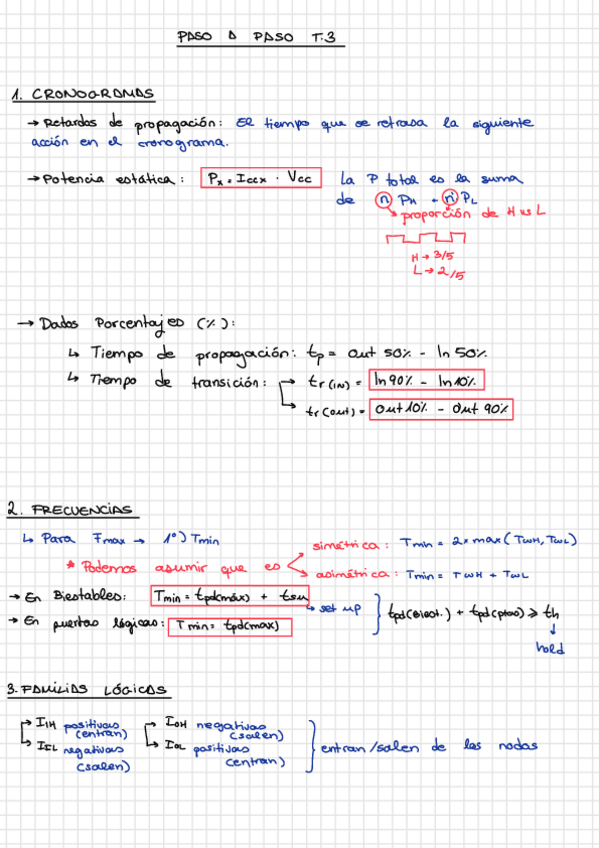 PASO A PASO T.3
1. CRONOGRAMAS
→ Retardos de propagación: El tiempo que se retrasa la siguiente
acción en el cronograma.
→ Potencia estática: Px = Iccx · Vcc La P total es la suma
de n PH + n' PL
proporción de H vs L
H → 3/5
L → 2/5
→ Dados Porcentajes (%):
↳ Tiempo de propagación: tp = Out 50% - In 50%
↳ Tiempo de transición: → tr(IN) = In 90% - In 10%
→ tr(out) = Out 10% - Out 90%
2. FRECUENCIAS
↳ Para Fmax → 1º) Tmin
simétrica: Tmin = 2 × max(TWH, TWL)
* Podemos asumir que es
asimétrica: Tmin = TWH + TWL
→ En Biestables: Tmin = tpd(máx) + tsu → set up
→ En puertas lógicas: Tmin = tpd(max)
tpd(Biest.) + tpd(ptas) ≥ th
↓
hold
3. FAMILIAS LÓGICAS
→ IIH positivas (entran) → IOH negativas (salen)
→ IIL negativas (salen) → IOL positivas (entran)
entran/salen de los nodos